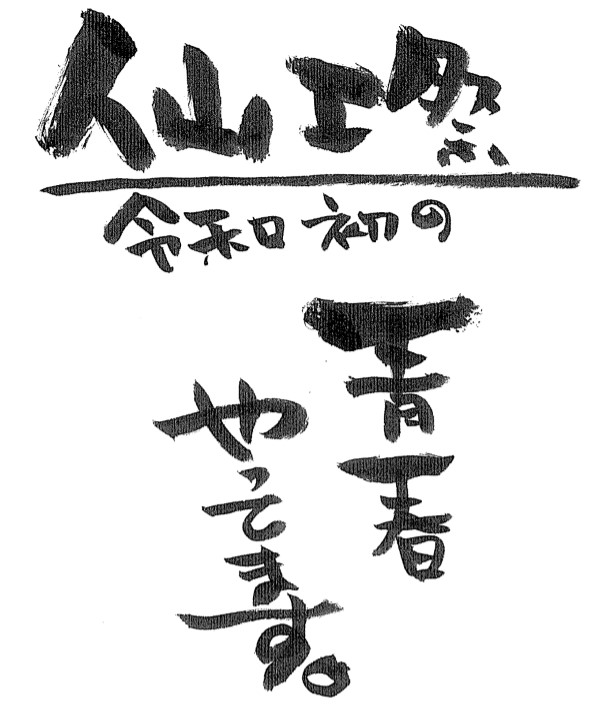 仙工祭
令和初の
青春
やってます。